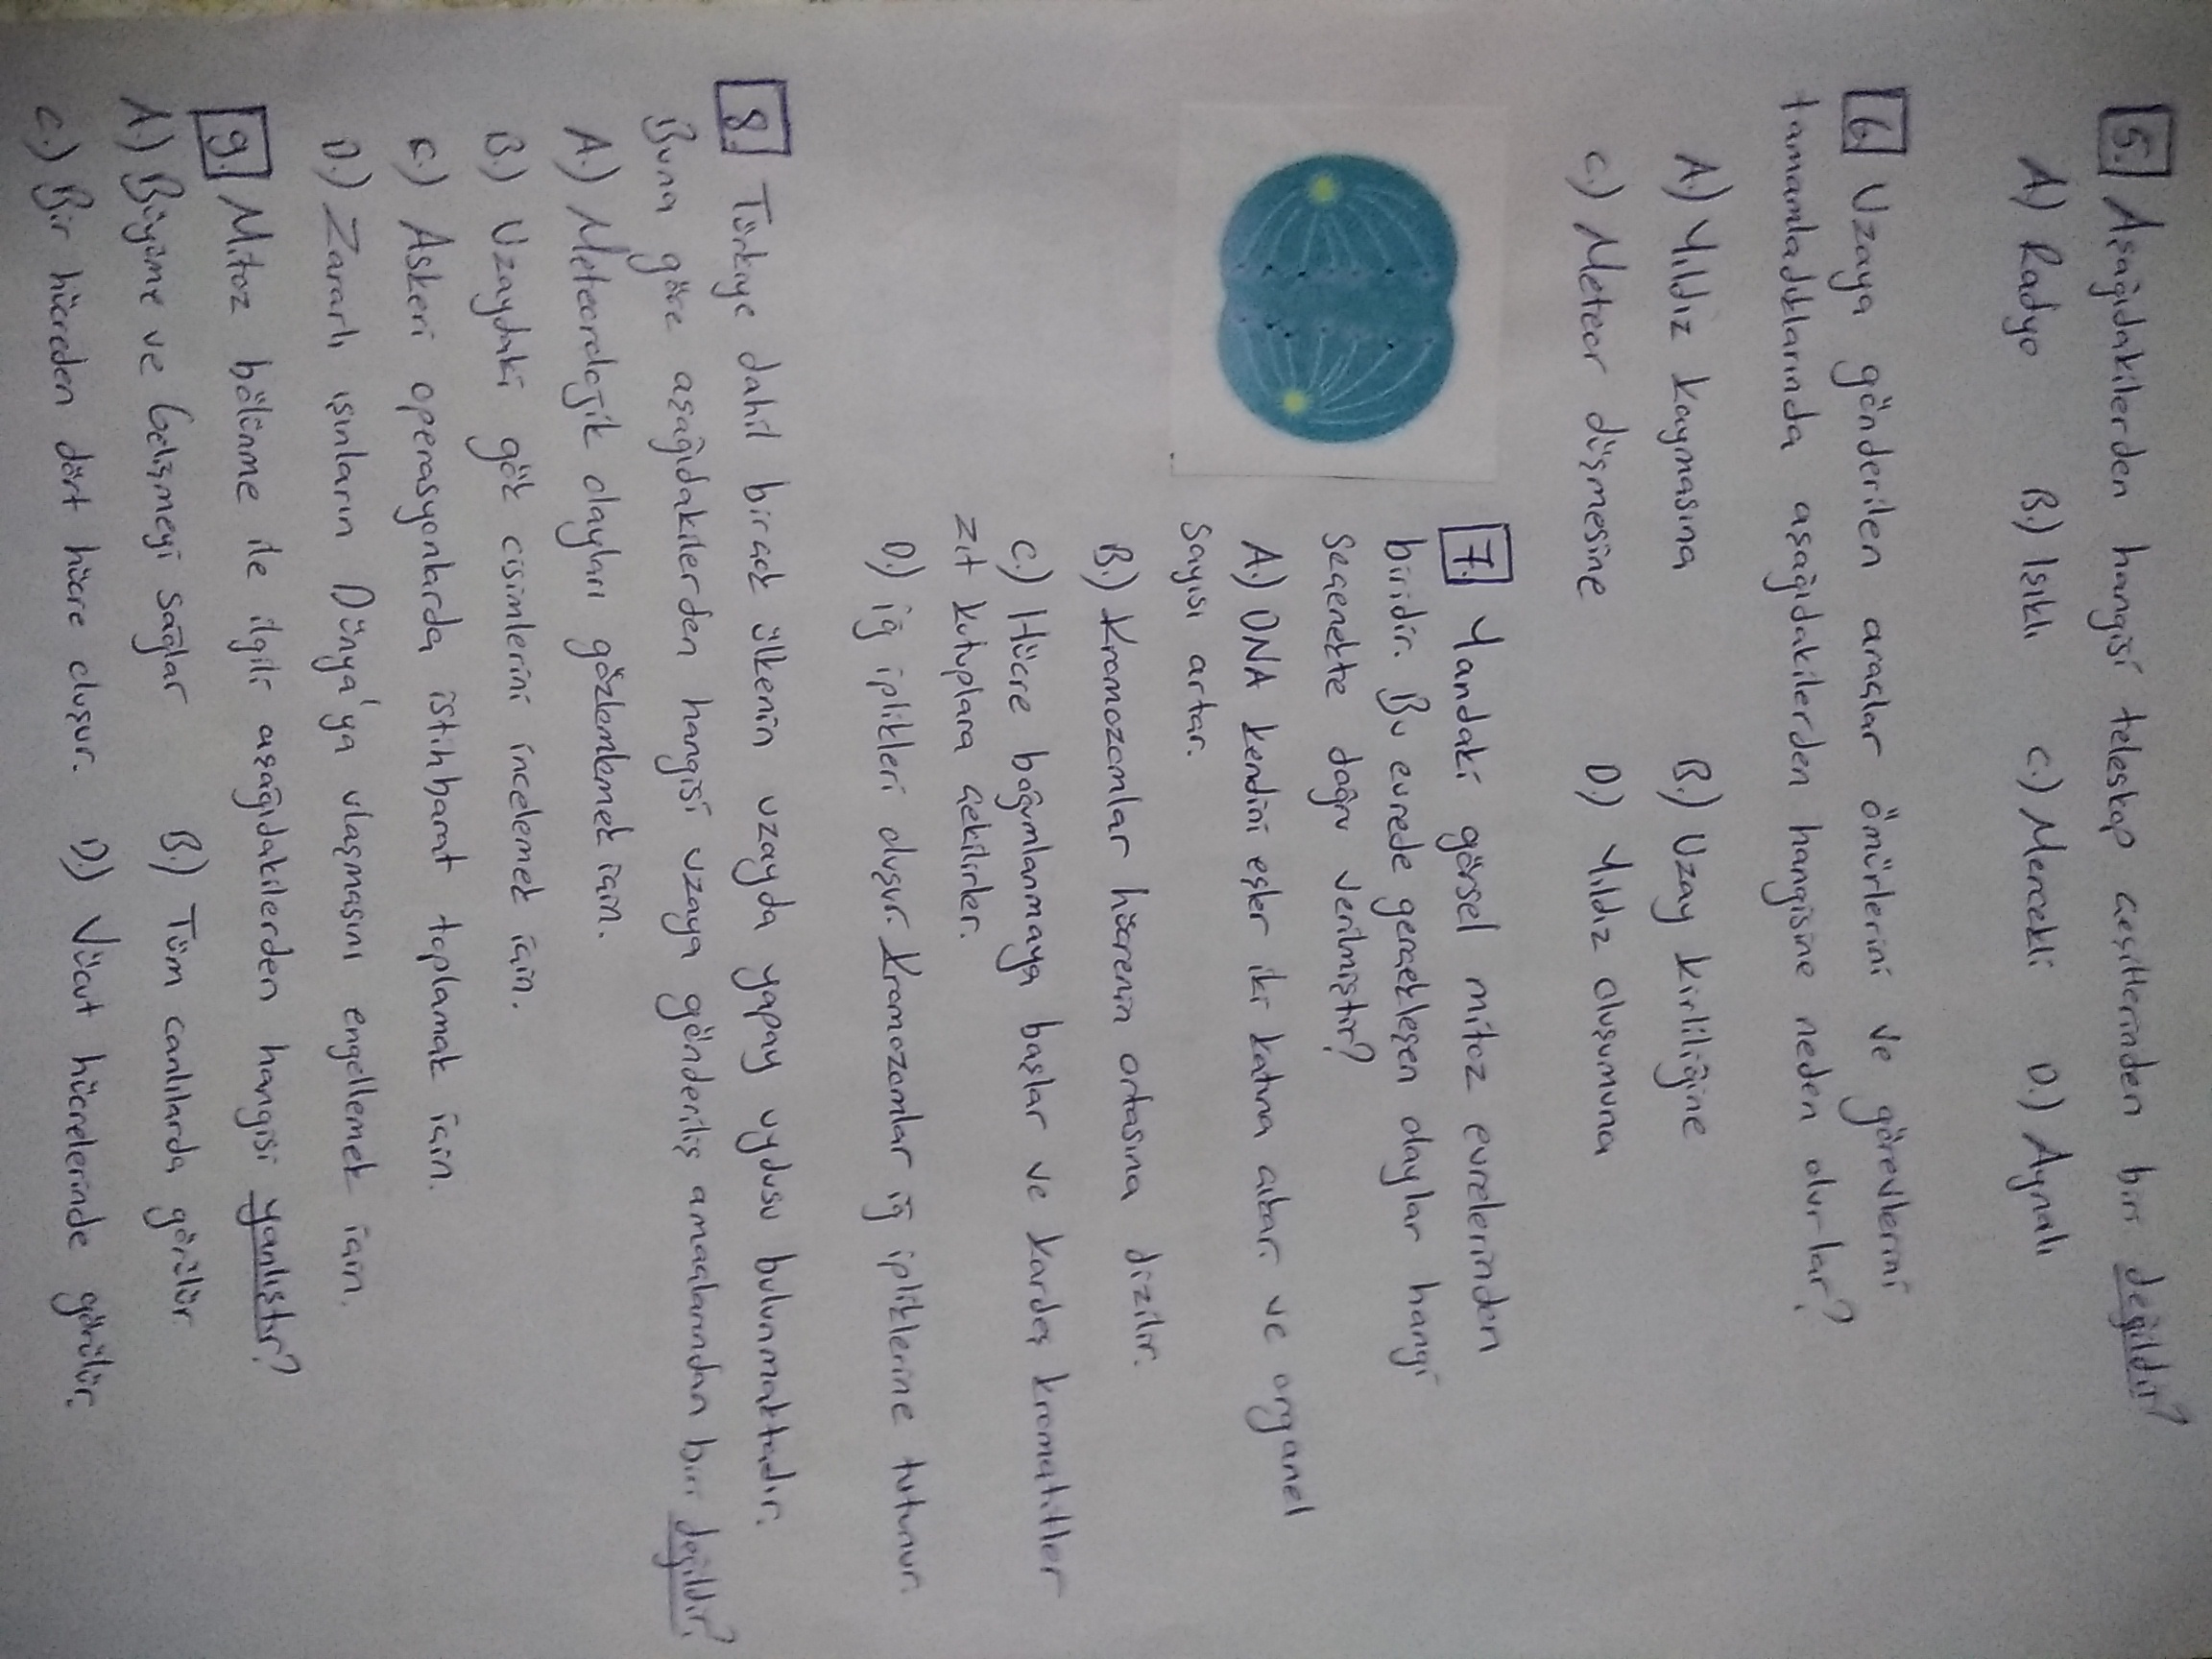 5. Aşağıdakilerden hangisi teleskop çeşitlerinden biri değildir?
A) Radyo B.) Işıklı C.) Mercekli D.) Aynalı
6. Uzaya gönderilen araçlar ömürlerini ve görevlerini
tamamladıklarında aşağıdakilerden hangisine neden olurlar?
A.) Yıldız kaymasına B.) Uzay kirliliğine
C.) Meteor düşmesine D.) Yıldız oluşumuna
7. Yandaki görsel mitoz evrelerinden
biridir. Bu evrede gerçekleşen olaylar hangi
seçenekte doğru verilmiştir?
A.) DNA kendini eşler iki katına çıkar. ve organel
sayısı artar.
B.) Kromozomlar hücrenin ortasına dizilir.
C.) Hücre boğumlanmaya başlar ve kardeş kromatitler
zıt kutuplara çekilirler.
D.) iğ iplikleri oluşur. Kromozomlar iğ ipliklerine tutunur.
8. Türkiye dahil birçok ülkenin uzayda yapay uydusu bulunmaktadır.
Buna göre aşağıdakilerden hangisi uzaya gönderiliş amaçlarından biri değildir?
A.) Meteorolojik olayları gözlemlemek için.
B.) Uzaydaki gök cisimlerini incelemek için.
C.) Askeri operasyonlarda istihbarat toplamak için.
D.) Zararlı ışınların Dünya'ya ulaşmasını engellemek için.
9. Mitoz bölünme ile ilgili aşağıdakilerden hangisi yanlıştır?
A.) Büyüme ve Gelişmeyi sağlar B.) Tüm canlılarda görülür
C.) Bir hücreden dört hücre oluşur. D.) Vücut hücrelerinde görülür.